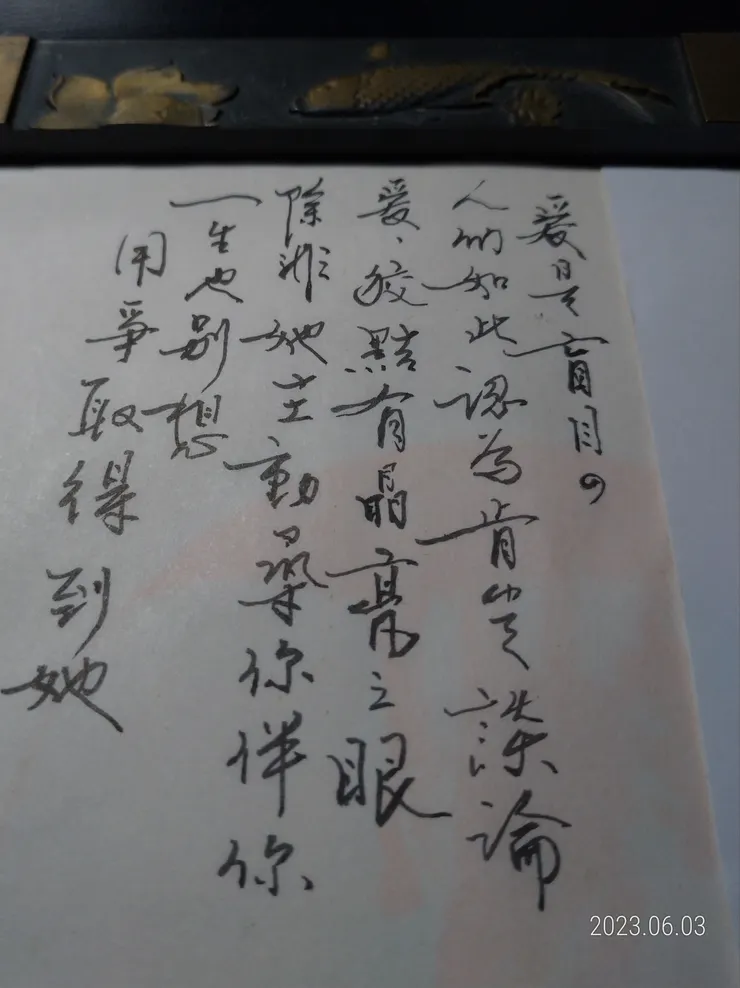 爱是盲目の
人们如此認為肯定論
爱、狡黠有晶亮之眼
除非她主動尋你伴你
一生也别想
用爭取得到她
2023.06.03